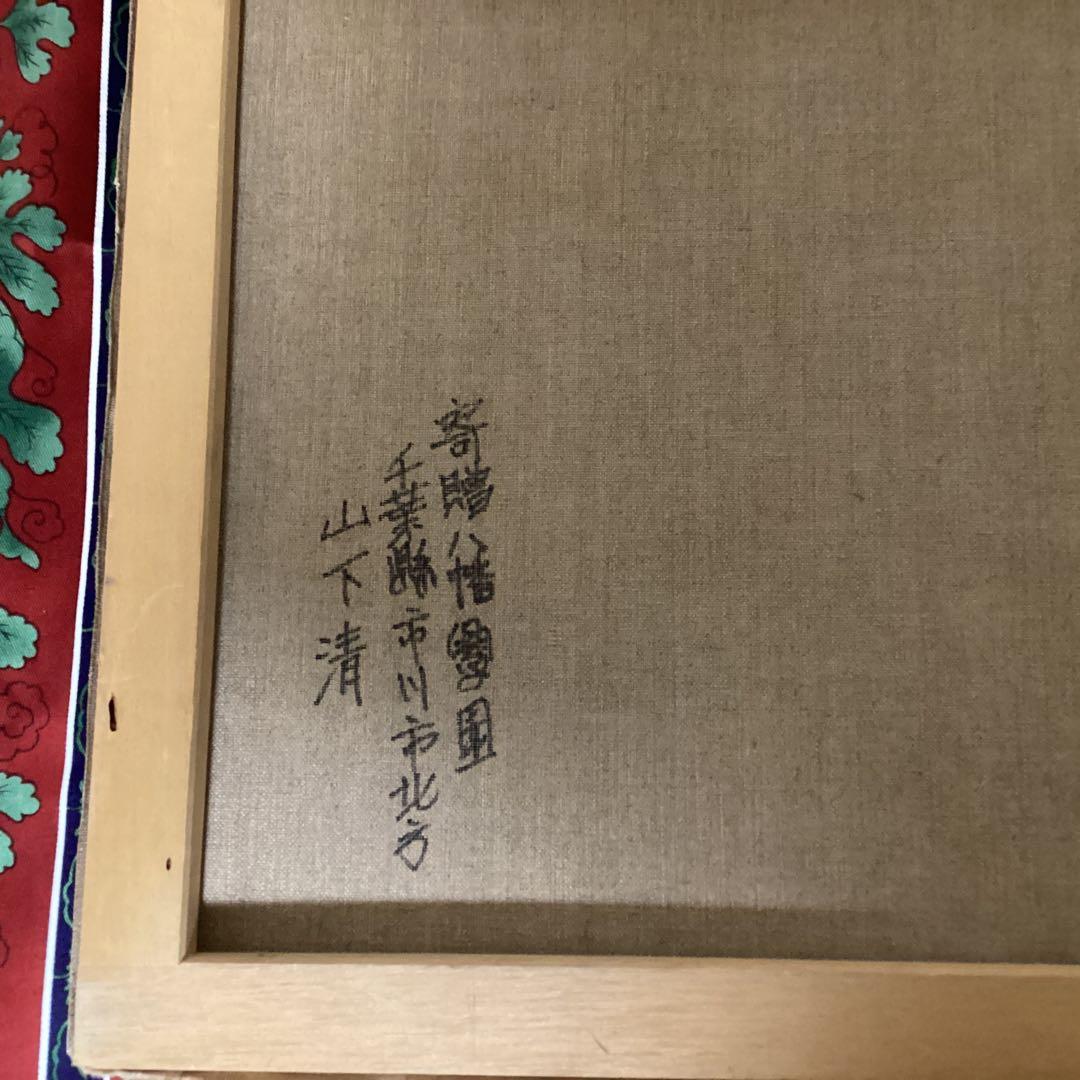 寄贈八幡學園
千葉縣市川市北方
山下清